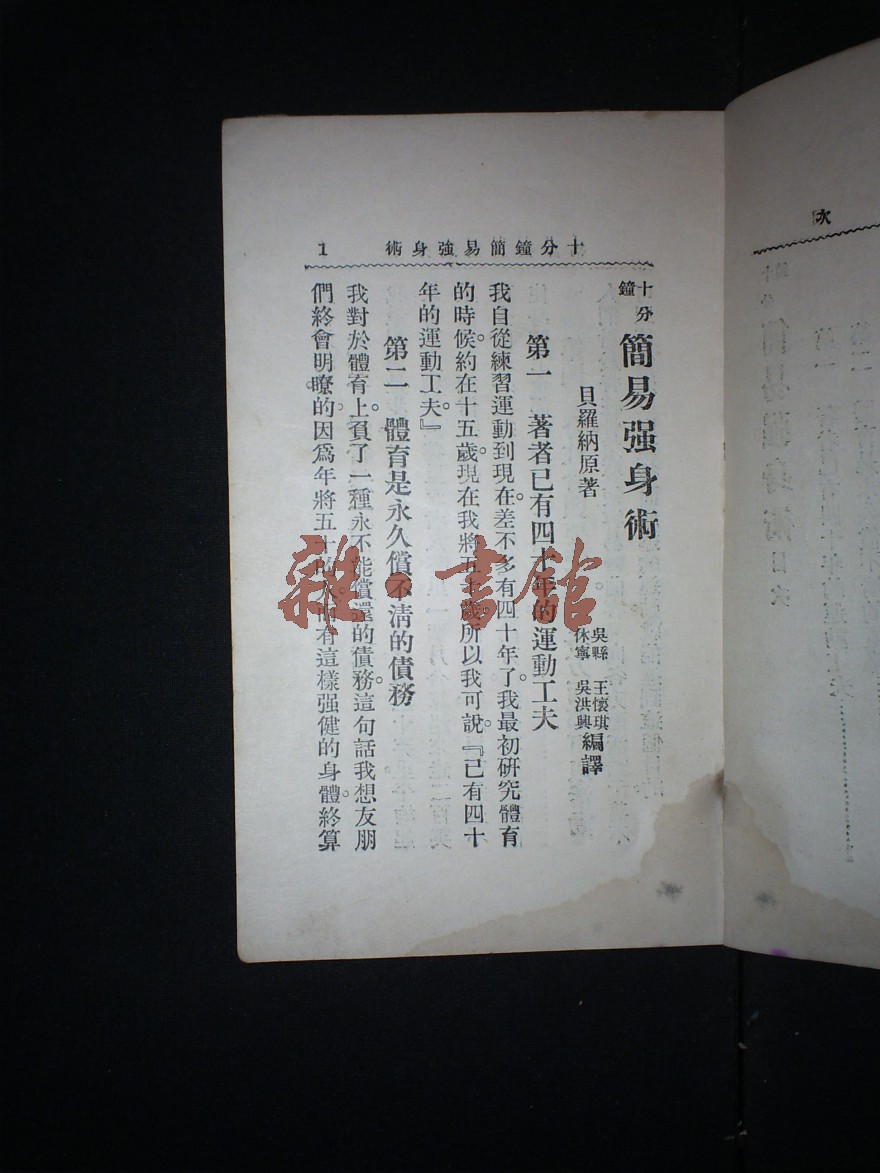 十分鐘簡易強身術 1
十分鐘 簡易强身術
貝羅納原著
吳縣 王懷琪
休寧 吳洪興 編譯
第一 著者已有四十年的運動工夫
我自從練習運動到現在。差不多有四十年了。我最初研究體育
的時候。約在十五歲。現在我將五十歲。所以我可說。『已有四十
年的運動工夫。』
第二 體育是永久償不淸的債務
我對於體育上。負了一種永不能償還的債務。這句話我想友朋
們終會明瞭的。因爲年將五十的人。而有這樣强健的身體。終算
次
雜·書館